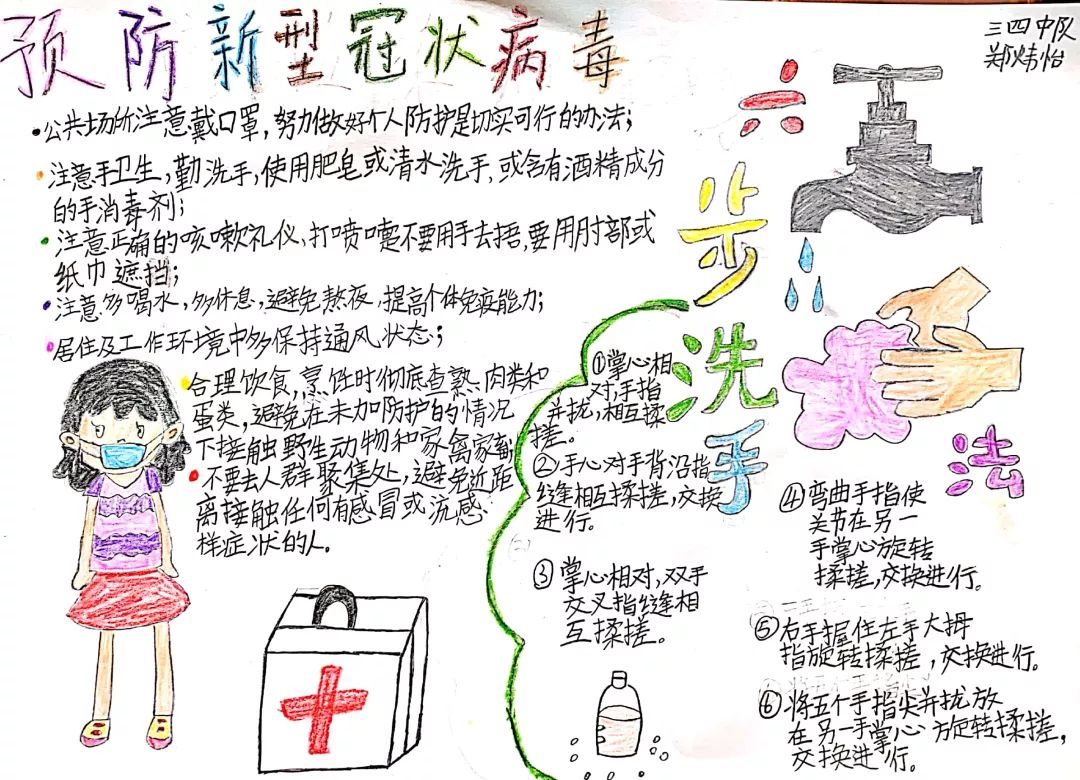 预防新型冠状病毒
三四中队
郑炜怡
•公共场所注意戴口罩，努力做好个人防护是切实可行的办法；
•注意手卫生，勤洗手，使用肥皂或清水洗手，或含有酒精成分
的手消毒剂；
•注意正确的咳嗽礼仪、打喷嚏不要用手去捂，要用肘部或
纸巾遮挡；
•注意多喝水，多休息，避免熬夜，提高个体免疫能力；
•居住及工作环境中多保持通风状态；
•合理饮食，烹饪时彻底查熟、肉类和
蛋类，避免在未加防护的情况
下接触野生动物和家禽家畜；
•不要去人群聚集处，避免近距
离接触任何有感冒或流感
样症状的人。
六步洗手法
①掌心相
对，手指
并拢，相互揉
搓。
②手心对手背沿指
缝相互揉搓，交换
进行。
③掌心相对，双手
交叉指缝相
互揉搓。
④弯曲手指使
关节在另一
手掌心旋转
揉搓，交换进行。
⑤右手握住左手大拇
指旋转揉搓，交换进行。
⑥将五个手指尖并拢放
在另一手掌心旋转揉搓，
交换进行。